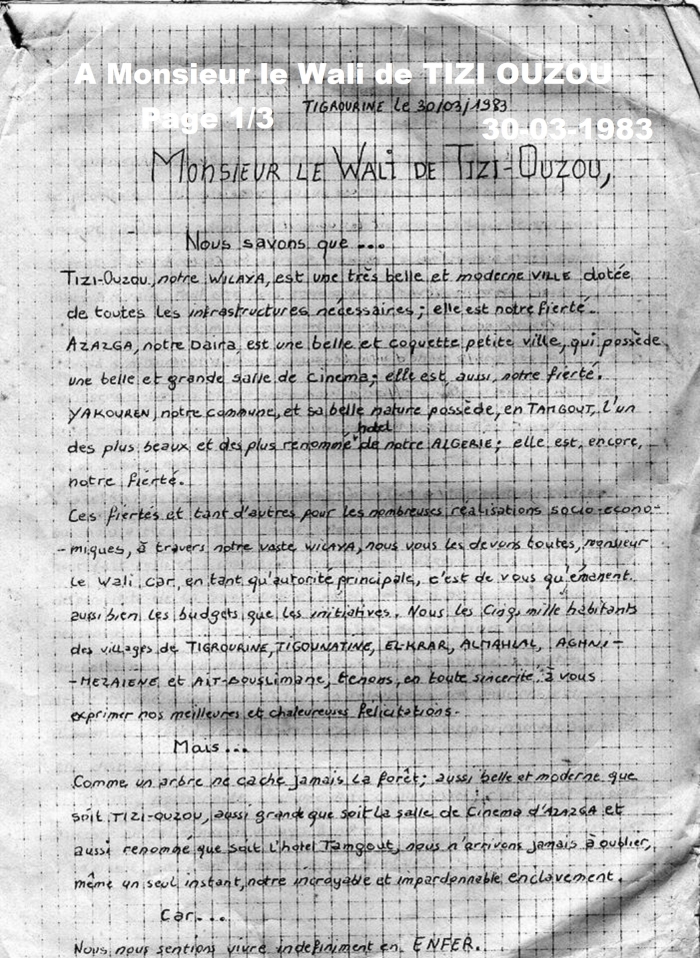 A Monsieur le Wali de TIZI OUZOU
TIGROURINE le 30/03/1983
Page 1/3
30-03-1983
MONSIEUR LE WALI DE TIZI-OUZOU,
Nous savons que...
TIZI-OUZOU, notre WILAYA, est une très belle et moderne VILLE dotée
de toutes les infrastructures nécessaires; elle est notre fierté.
AZAZGA, notre Daïra, est une belle et coquette petite ville, qui possède
une belle et grande salle de cinema; elle est, aussi, notre fierté.
YAKOUREN, notre commune, et sa belle nature possède, en TAMGOUT, l'un
hotel
des plus beaux et des plus renommé de notre ALGERIE; elle est, encore,
notre fierté.
Ces fiertés et tant d'autres pour les nombreuses réalisations socio-econo-
-miques, à travers notre vaste WILAYA, nous vous les devons toutes, monsieur
le Wali car, en tant qu'autorité principale, c'est de vous qu'émanent
aussi bien les budgets que les initiatives. Nous les Cinq mille habitants
des villages de TIGROURINE, TIGOUNATINE, EL-KRAR, ALMAHLAL, AGHNI-
-MEZAIENE et AIT-BOUSLIMANE, tenons, en toute sincerité, à vous
exprimer nos meilleures et chaleureuses felicitations.
Mais...
Comme un arbre ne cache jamais la forêt; aussi belle et moderne que
soit TIZI-OUZOU, aussi grande que soit la salle de Cinema d'AZAZGA et
aussi renommé que soit l'hotel Tamgout, nous n'arrivons jamais à oublier,
même un seul instant, notre incroyable et impardonnable enclavement.
Car...
Nous nous sentions vivre indefiniment en ENFER.